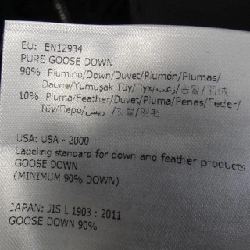 EU: EN12934
PURE GOOSE DOWN
90% Piumino/Down/Duvet/Plumón/Plumas/
Daune/Yumuşak Tüy/
10% Piuma/Feather/Duvet/Pluma/Penas/Feder/
Tüy/Перо/ريش/
USA: USA - 2000
Labeling standard for down and feather products
GOOSE DOWN
(MINIMUM 90% DOWN)
JAPAN: JIS L 1903 : 2011
GOOSE DOWN 90%